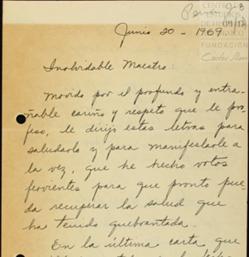 Junio 20 - 1969
Inolvidable Maestro:
Movido por el profundo y entra-
ñable cariño y respeto que le pro-
feso, le dirijo estas letras para
saludarlo y para manifestarle a
la vez, que he hecho votos
fervientes para que pronto pue-
da recuperar la salud que
ha tenido quebrantada.
En la última carta que